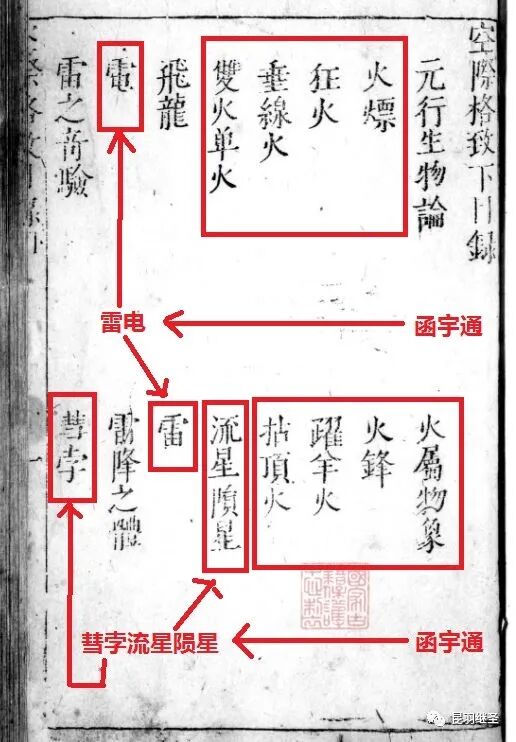 空際格致下目録
元行生物論
火屬物象
火熛
火鋒
狂火
躍羊火
垂線火
拈頂火
雙火单火
流星隕星
飛龍
雷
電
雷降之體
雷之竒驗
彗孛
雷电
函宇通
彗孛流星陨星
函宇通
昆羽继圣